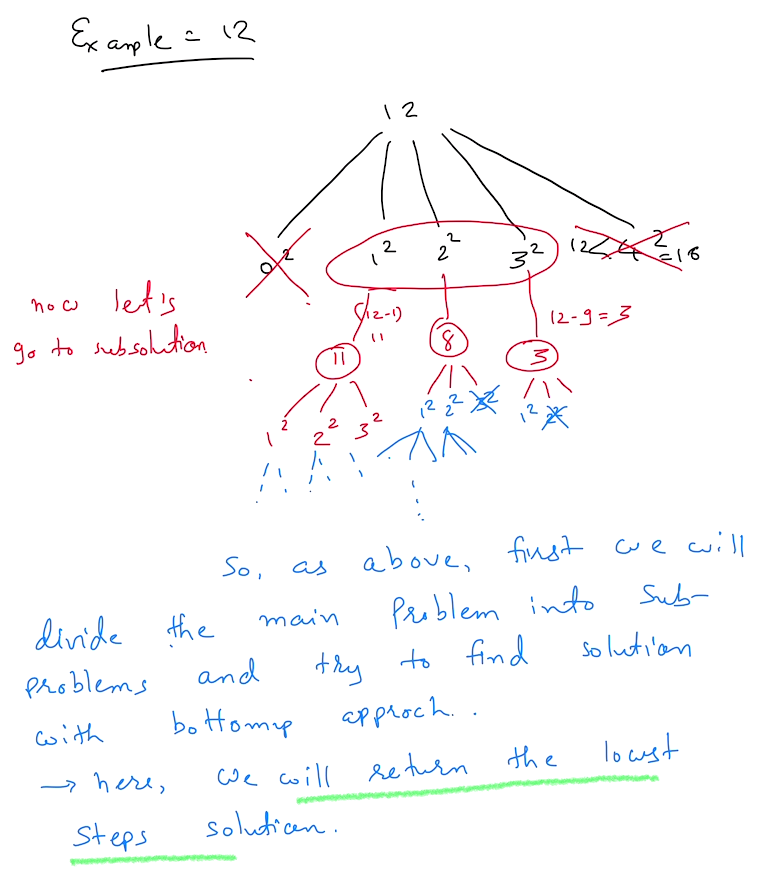 Example = 12
12
0² 1² 2² 3² 12<4²=16
now let's
(12-1)
12-9=3
11
go to subsolution
11 8 3
1² 2² 3² 1² 2²
1² 2² 3²
So, as above, first we will
divide the main Problem into Sub-
problems and try to find solution
with bottomup approch..
→ here, we will return the lowst
Steps solution.